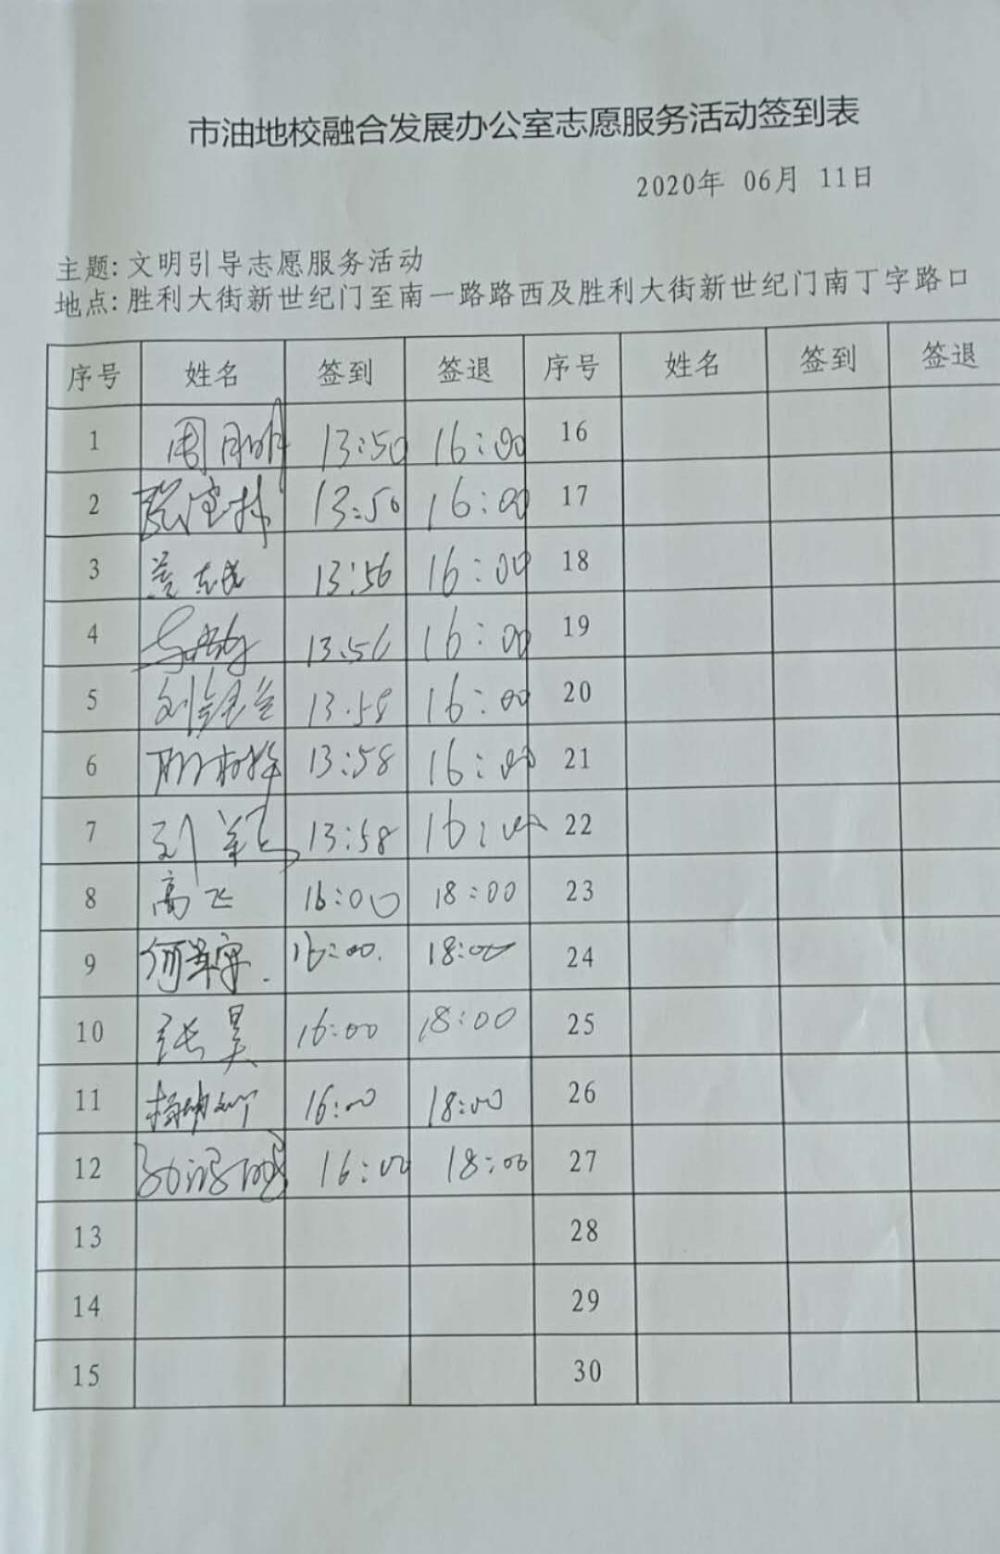 市油地校融合发展办公室志愿服务活动签到表
2020年 06月 11日
主题: 文明引导志愿服务活动
地点: 胜利大街新世纪门至南一路路西及胜利大街新世纪门南丁字路口
序号 姓名 签到 签退 序号 姓名 签到 签退
1 周刚明 13:50 16:00 16
2 13:50 16:00 17
3 13:56 16:00 18
4 13:56 16:00 19
5 13:58 16:00 20
6 13:58 16:00 21
7 刘 13:58 16:00 22
8 高飞 16:00 18:00 23
9 何 16:00. 18:00 24
10 张昊 16:00 18:00 25
11 杨 16:00 18:00 26
12 16:00 18:00 27
13 28
14 29
15 30